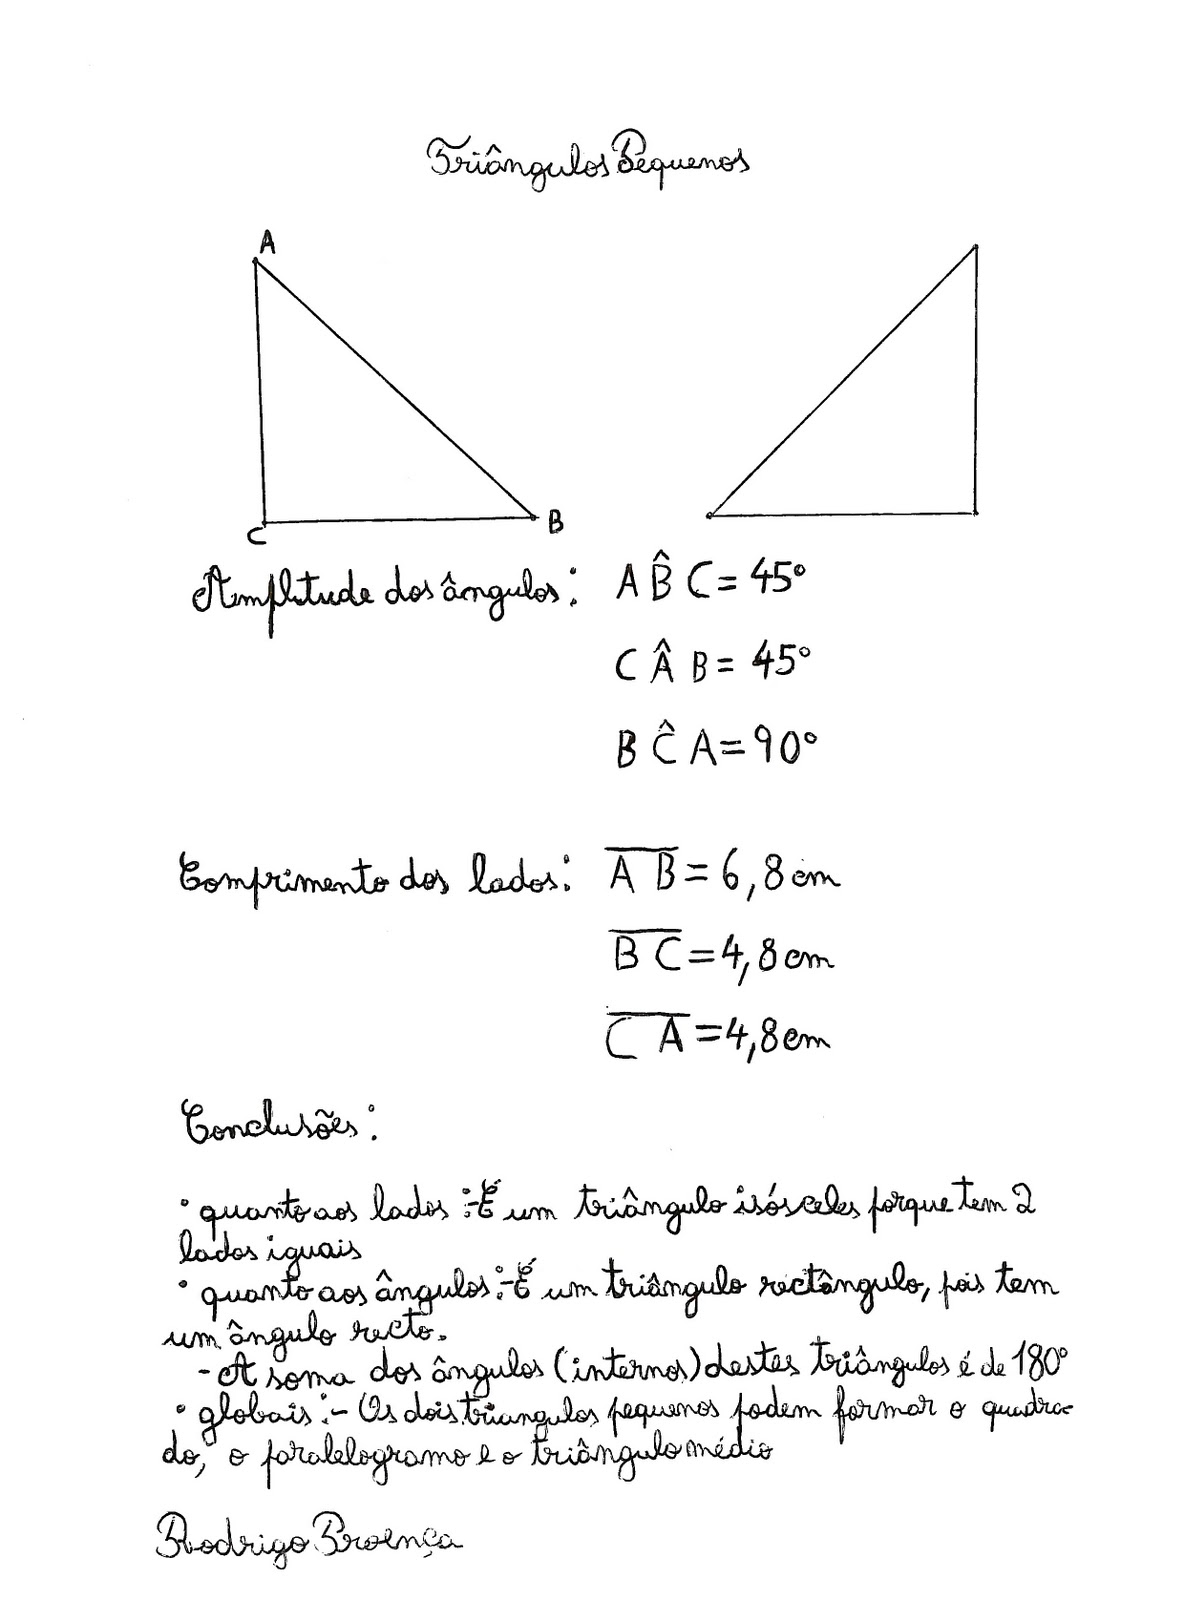 Triângulos Pequenos
A
C
B
Amplitude dos ângulos: A B̂ C = 45°
C Â B = 45°
B Ĉ A = 90°
Comprimento dos lados: A̅ B̅ = 6,8 cm
B̅ C̅ = 4,8 cm
C̅ A̅ = 4,8 cm
Conclusões:
• quanto aos lados :-É um triângulo isósceles porque tem 2
lados iguais
• quanto aos ângulos:-É um triângulo rectângulo, pois tem
um ângulo recto.
- A soma dos ângulos (internos) destes triângulos é de 180°
• globais:- Os dois triangulos pequenos podem formar o quadra-
do, o paralelogramo e o triângulo médio
Rodrigo Proença